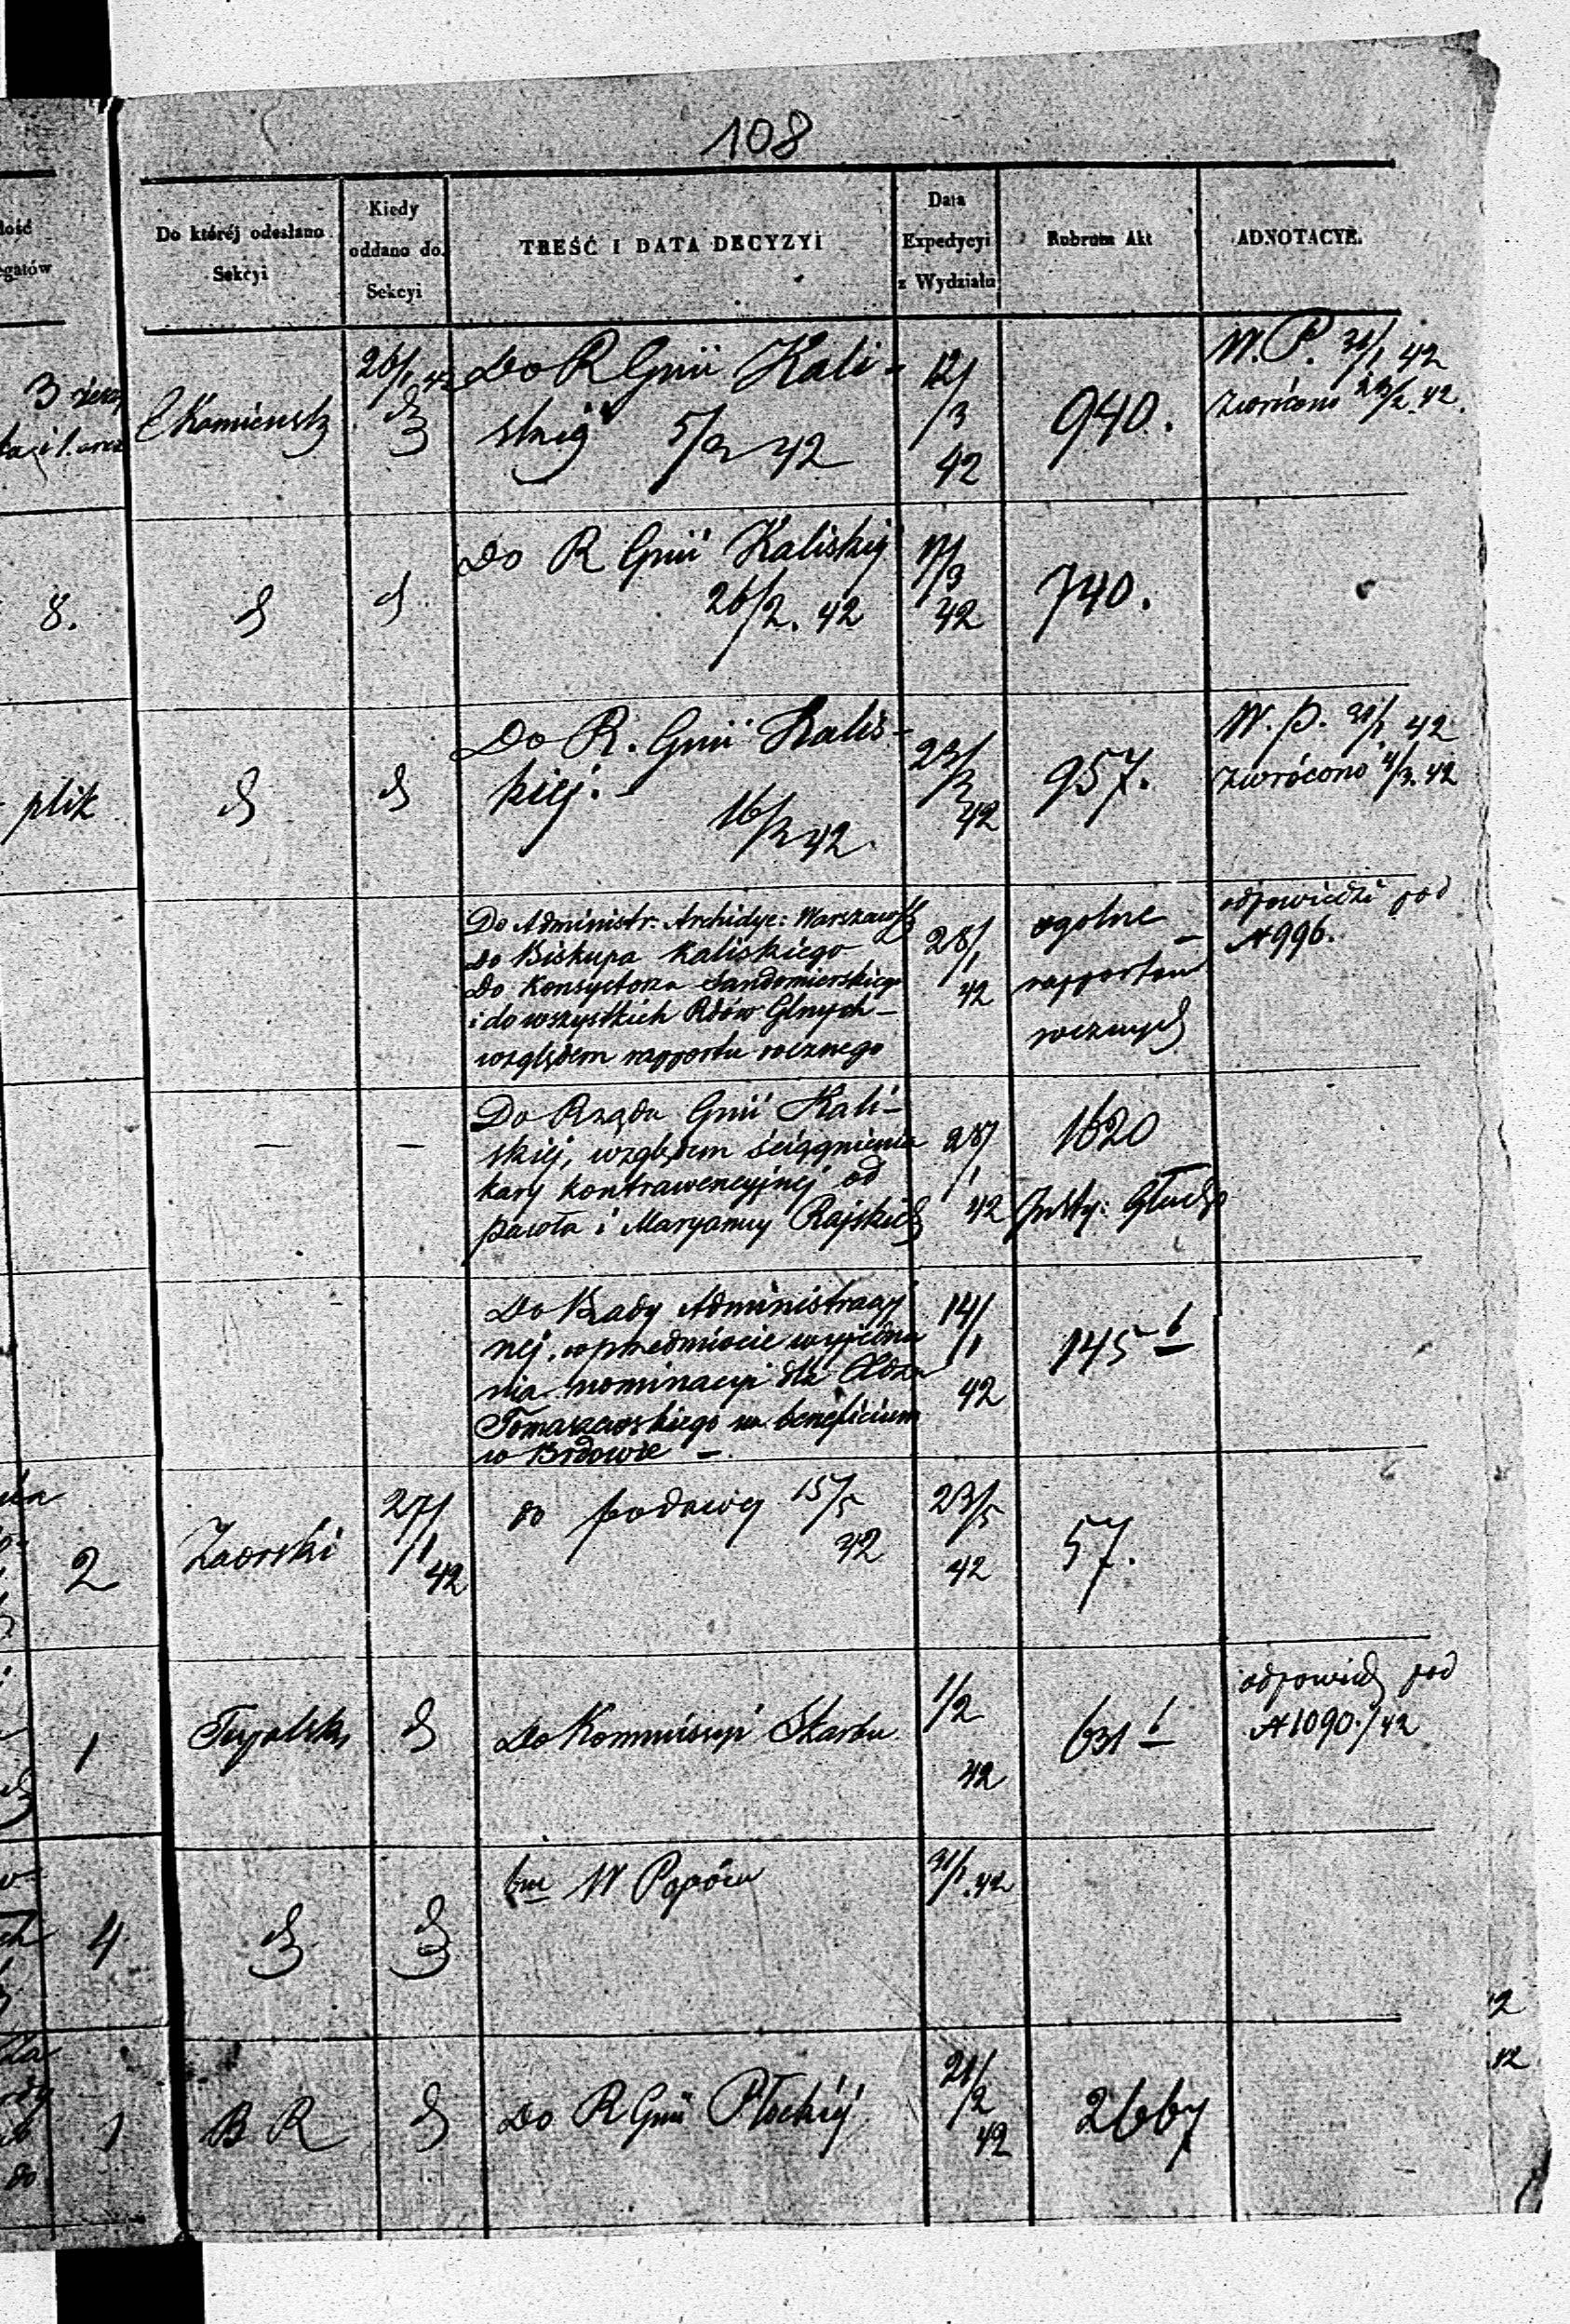 108
Do któréj odesłano
Sekcyi
Kiedy
oddano do
Sekcyi
TREŚĆ I DATA DECYZYI
Data
Expedycyi
z Wydziału
Rubrum Akt
ADNOTACYE.
26/1 42
Do R Gnii Kali-
skiéj 5/2 42
12/3 42
940.
W. P. 31/1 42
zwrócono 23/2 42.
8.
Do R Gnii Kaliskiéj
26/2. 42
17/3 42
740.
plik
Do R. Gnii Kalis-
kiej. -
16/2 42.
23/2 42
957.
W. P. 31/1 42
zwrócono 4/3. 42
Do Administr. Archidyec: Warszawsk
Do Biskupa Kaliskiego
Do Konsystorza Sandomierskiego
i do wszystkich Rdów Glnych -
względem rapportu rocznego
28/1 42
ogolne -
rapportow
rocznych
odpowiedzi pod
N 996.
Do Rządu Gnii Kali-
skiej, względem ściągnienia
kary kontrawencyjnej od
Pawła i Maryanny Rajskich
28/1 42
1620
Insty: Głuch
Do Rady Administracyj
nej, w przedmiocie wyjedna
nia nominacyi dla Xdza
Tomaszewskiego na beneficium
w Brdowie -
14/1 42
145 b
2
Zaorski
27/1 42
do 15/5 42
23/5 42
57.
1
Do Kommissyi Skarbu
1/2 42
631 b
odpowiedź pod
N 1090/42
4
bm W Popów
31/1. 42
1
B R
Do R Gnii Płockiéj
21/2 42
2667